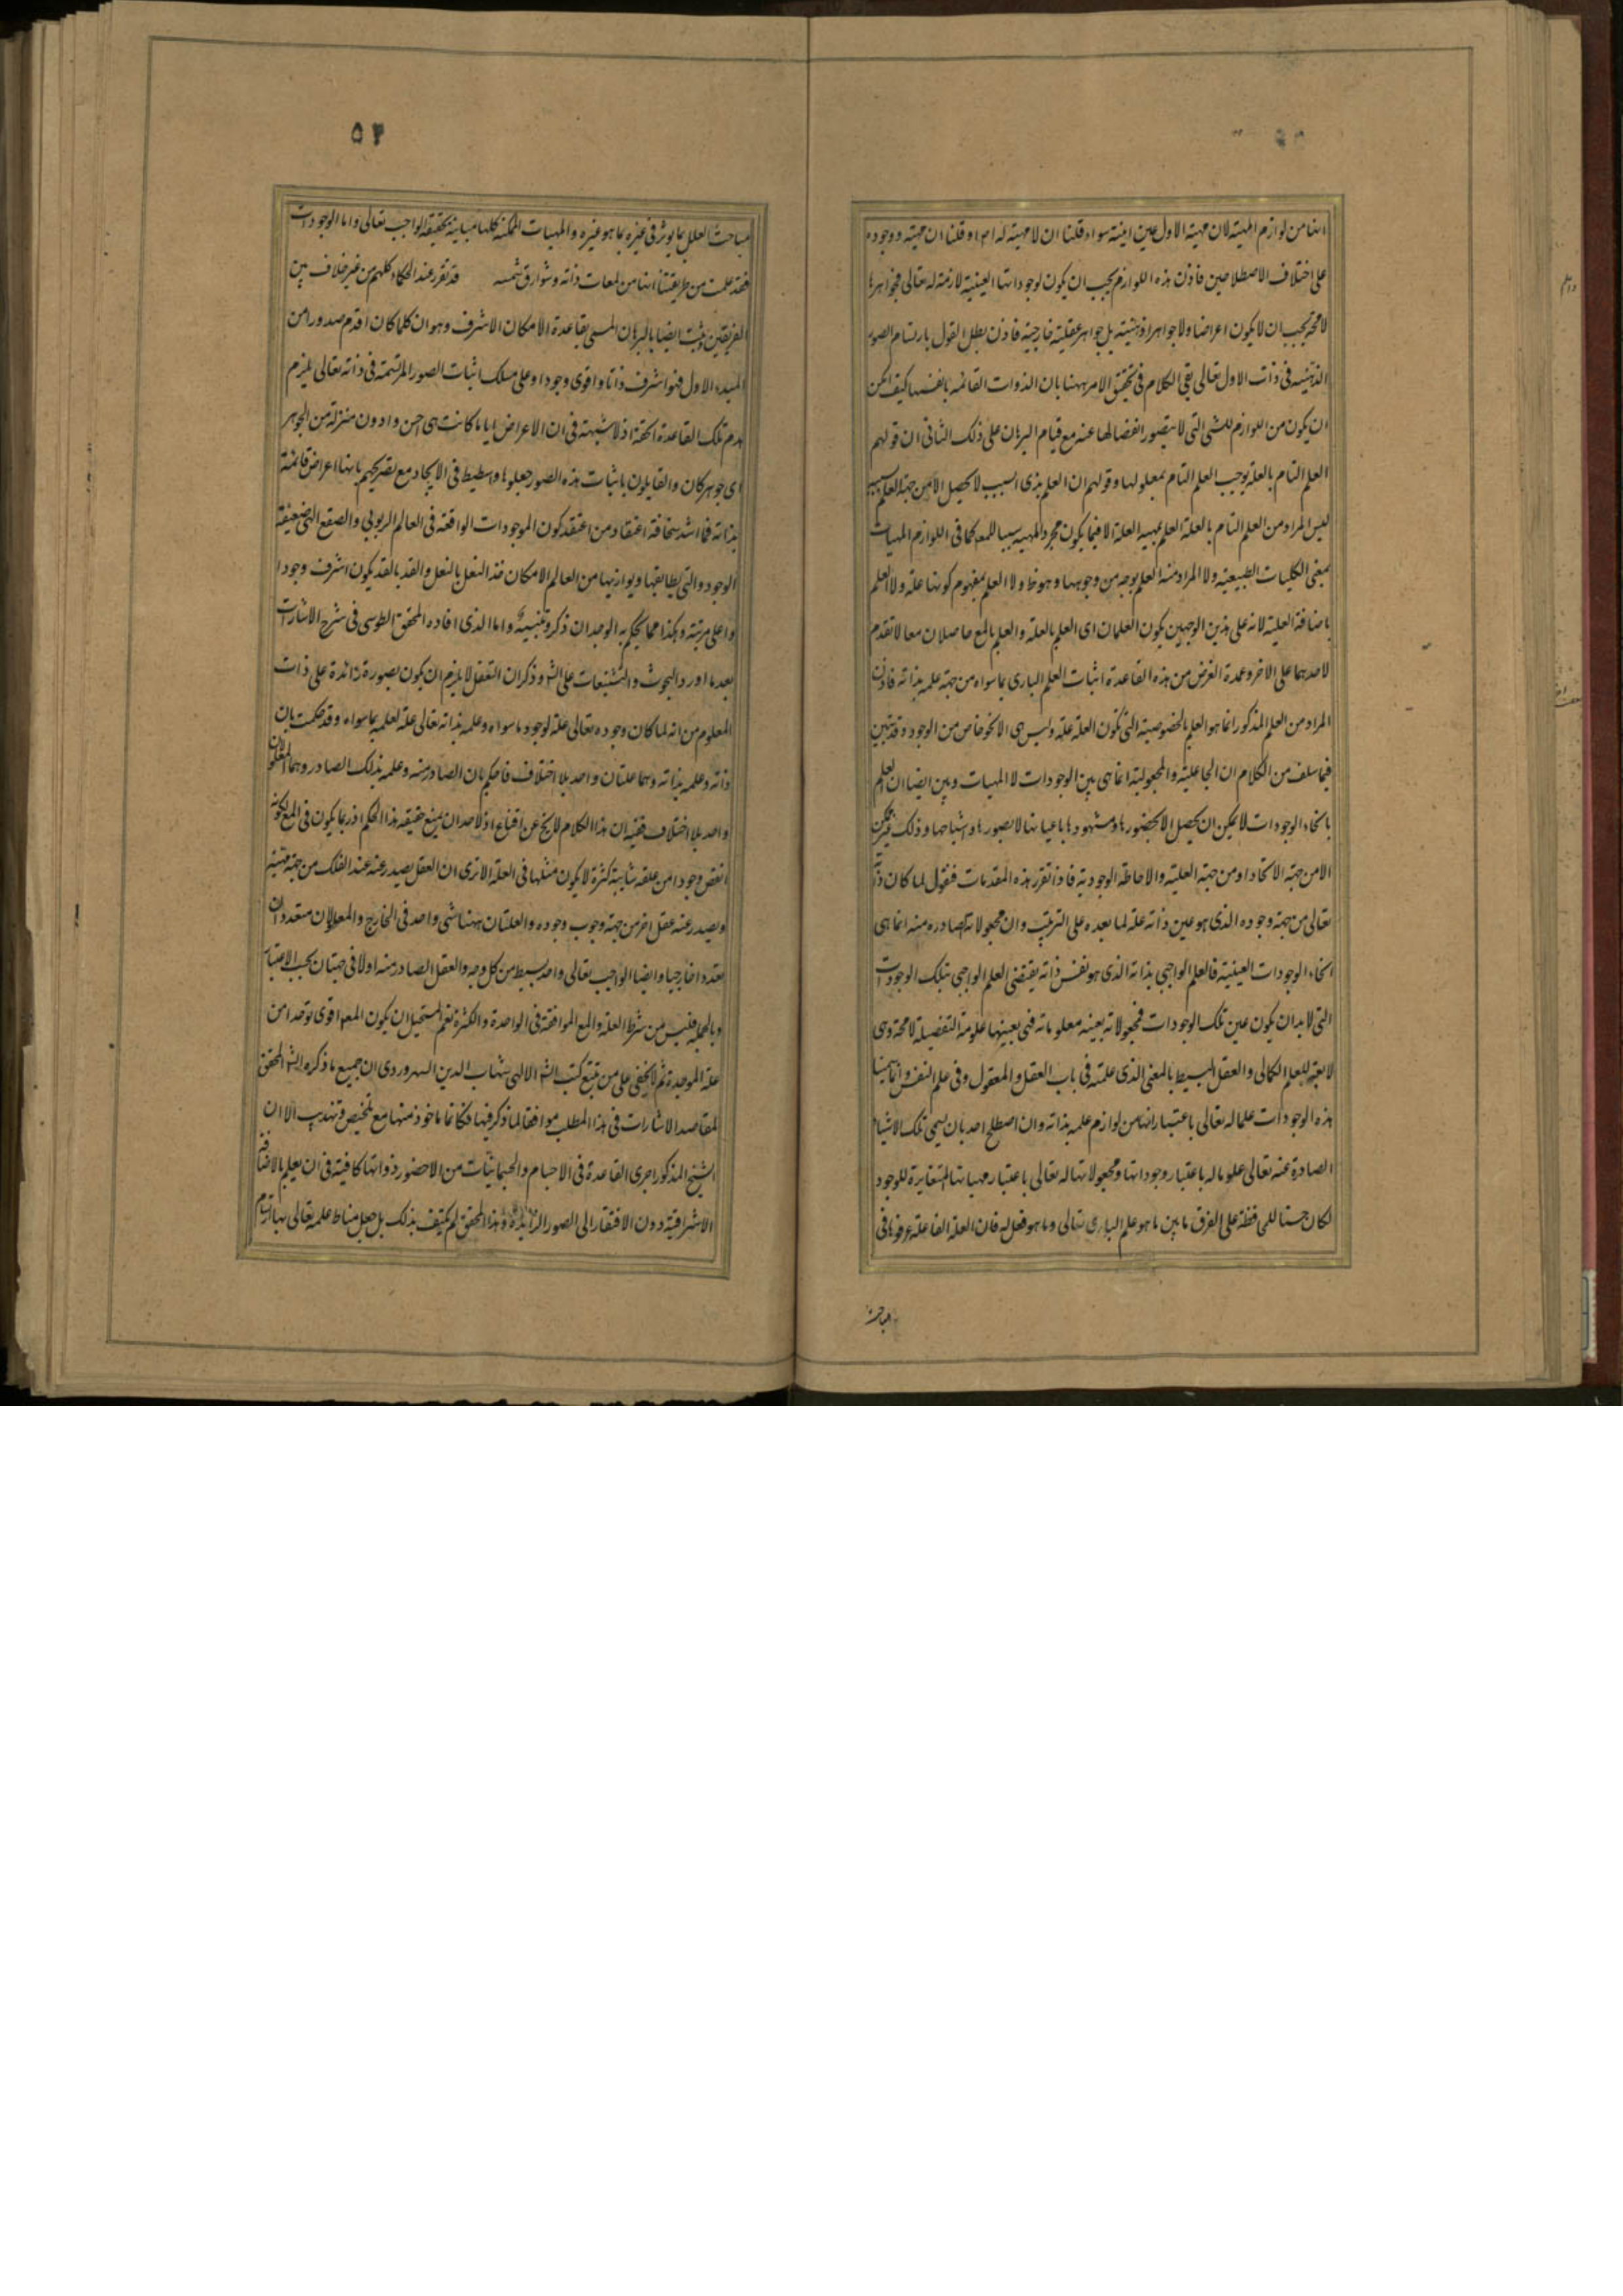 انها من لوازم المهية لان مهية الاول عين انيته سواء قلنا ان لا مهية له او قلنا ان مهيته وجوده
على اختلاف الاصطلاحين فاذن هذه اللوازم يجب ان يكون لوجوداتها العينية لازمة له تعالى فجواهرها
لا محة يجب ان لا يكون اعراضا ولا جواهر ذهنية بل جواهر عقلية خارجية فاذن بطل القول بارتسام الصور
الذهنية فى ذات الاول تعالى بقى الكلام فى تحقق الامر ههنا بان الذوات القائمه بانفسها كيف يمكن
ان يكون من اللوازم للشى التى لا يتصور انفصالها عنه مع قيام البرهان على ذلك الثانى ان قولهم
العلم التام بالعلة يوجب العلم التام بمعلولها وقولهم ان العلم بذى السبب لا يحصل الا من جهة العلم بسببه
ليس المراد من العلم التام بالعلة العلم بمهية العلة الا فيما يكون مجرد المهية سببا للمعه كما فى اللوازم المهيات
بمعنى الكليات الطبيعية ولا المراد منه العلم بوجه من وجوهها وهو ظ ولا العلم بمفهوم كونها علة ولا العلم
باضافة العلية لانه على هذين الوجهين يكون العلمان اى العلم بالعلة والعلم بالمع حاصلان معا لا تقدم
لاحدهما على الاخر وعمدة الغرض من هذه القاعدة اثبات العلم البارى بما سواه من جهة علمه بذاته فاذن
المراد من العلم المذكور انما هو العلم بالخصوصية التى تكون العلة علة وليس هى الا نحو خاص من الوجود وقد تبين
فيما سلف من الكلام ان الجاعلية والمجعولية انما هى بين الوجودات لا المهيات وبين ايضا ان العلم
بانحاء الوجودات لا يمكن ان يحصل الا بحضورها وشهودها باعيانها لا بصورها واشباحها وذلك غير ممكن
الا من جهة الاتحاد او من جهة العلية والاحاطة الوجودية فاذا تقرر هذه المقدمات فنقول لما كان ذاته
تعالى من جهة وجوده الذى هو عين ذاته علة لما بعده على الترتيب وان مجعولاته الصادره منه انما هى
انحاء الوجودات العينية فالعلم الواجبى بذاته الذى هو نفس ذاته يقتضى العلم الواجبى بتلك الوجودات
التى لا بد ان يكون عين تلك الوجودات فمجعولاته بعينه معلوماته فهى بعينها علومه التفضيلية لا محة وهى
للعلم الكمالى والعقل البسيط بالمعنى الذى علمته فى باب العقل والمعقول وفى علم النفس وانما سمينا
هذه الوجودات علما له تعالى باعتبار انها من لوازم علمه بذاته وان اصطلح احد بان يسمى تلك الاشياء
الصادرة عنه تعالى علوما له باعتبار وجوداتها ومجعولاتها له تعالى باعتبار مهياتها المتغايرة للوجود
لكان حسنا للمحافظة على الفرق ما بين ما هو علم البارى تعالى وما هو فعل له فان العلة الفاعلة عرفوها فى
مباحث
٥٤
مباحث العلل بما يوثر فى غيره بما هو غيره والمهيات الممكنة كلها مباينة لحقيقة الواجب تعالى واما الوجودات
فقد علمت من طريقتنا انها من لمعات ذاته وشوارق شمسه قد تقرر عند الحكماء كلهم من غير خلاف بين
الفريقين وثبت ايضا بالبرهان المسمى بقاعدة الامكان الاشرف وهو ان كلما كان اقدم صدورا من
المبدء الاول فهو اشرف ذاتا واقوى وجودا وعلى مسلك اثبات الصور المرتسمة فى ذاته تعالى يلزم
هدم تلك القاعدة الحقة اذ لا شبهة فى ان الاعراض اياما كانت هى اخس وادون منزلة من الجوهر
اى جوهر كان والقايلون باثبات هذه الصور جعلوها وسطيط فى الايجاد مع تصريحهم بانها اعراض قائمة
بذاته فما اشد سخافة اعتقاد من اعتقد كون الموجودات الواقعة فى العالم الربوبى والصقع الهى ضعيفة
الوجود والتى يطابقها ويوازيها من العالم الامكان حذا النعل بالنعل والقد بالقد يكون اشرف وجودا
واعلى مرتبة وهكذا مما يحكم به الوجدان ذكر وتنبيه واما الذى افاده المحقق الطوسى فى شرح الاشارات
بعد ما اورد البحوث والتشنيعات على الش وذكر ان التعقل لا يلزم ان يكون بصورة زائدة على ذات
المعلوم من انه لما كان وجوده تعالى علة لوجود ما سواه وعلمه بذاته تعالى علة لعلمه بما سواه وقد حكمت بان
ذاته وعلمه بذاته وهما علتان واحد بلا اختلاف فاحكم بان الصادر منه وعلمه بذلك الصادر وهما المعلولان
واحد بلا اختلاف ففيه ان هذا الكلام لا يخ عن اقناع اذ لاحد ان يمنع حقيقه هذا الحكم اذ ربما يكون فى المع لكونه
انقص وجودا من علته شايبة كثرة لا يكون مثلها فى العلة الا ترى ان العقل يصدر عنه عند الفلك من جهة مهيته
ويصدر عنه عقل اخر من جهة وجوب وجوده والعلتان ههنا شى واحد فى الخارج والمعلولان متعددان
تعددا خارجيا وايضا الواجب تعالى واحد بسيط من كل وجه والعقل الصادر منه اولا فى جهتان بحسب الاعتبار
وبالجملة فليس من شرط العلة والمع الموافقة فى الواحدة والكثرة نعم المستحيل ان يكون المعه اقوى توحدا من
علة الموحدة ثم لا يخفى على من تتبع كتب الش الالهى شهاب الدين السهروردى ان جميع ما ذكره الش المحقق
لمقاصد الاشارات فى هذا المطلب موافقا لما ذكر فيها فكانما ماخوذ منها مع تلخيص وتهذيب الا ان
الشيخ المذكور اجرى القاعدة فى الاجسام والجسمانيات من الاحضور ذواتها كافية فى ان يعلم بالاضافة
الاشراقية دون الافتقار الى الصور الزايدة وهذا المحقق لم يكتف بذلك بل جعل مناط علمه تعالى بها ارتسام